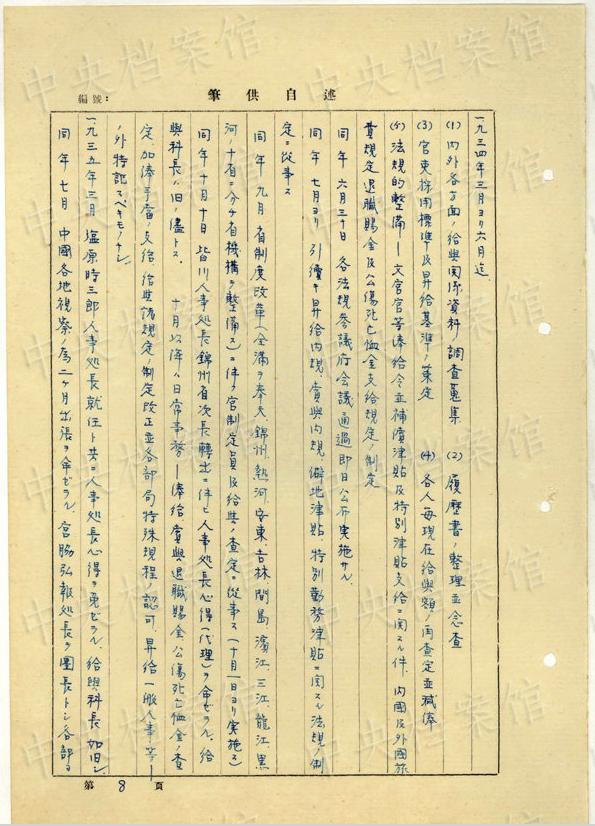 編號:
筆供自述
一九三四年三月ヨリ六月迄
(1) 内外各方面ノ給與関係資料ノ調査蒐集 (2) 履歴書ノ整理並念査
(3) 官吏採用標準及昇給基準ノ策定 (4) 各人毎現在給與額ノ再査定並減俸
(5) 法規的整備― 文官官等俸給令並補償津貼及特別津貼支給ニ関スル件、内國及外國旅
費規定退職賜金及公傷死亡恤金支給規定ノ制定
同年 六月三十日 各法規参議府会議通過即日公布実施サル
同年 七月ヨリ 引續キ昇給内規、賞與内規、僻地津貼、特別勤務津貼ニ関スル法規ノ制
定ニ従事ス
同年 九月 省制度改革(全滿ヲ奉天、錦州、熱河、安東、吉林、間島、濱江、三江、龍江、黒
河ノ十省ニ分チ省機構ヲ整備ス)ニ伴フ官制定員及給與ノ査定ニ従事ス(十月一日ヨリ実施ス)
同年十月十日 皆川人事処長錦州省次長轉出ニ伴ヒ人事処長心得(代理)ヲ命ゼラル、給
與科長ハ旧ノ儘トス. 十月以降ハ日常事務―俸給賞與退職賜金公傷死亡恤金ノ査
定、加俸手當ノ支給、給與諸規定ノ制定改正並各部局特殊規程ノ認可、昇給一般人事等―
ノ外特記スベキモノナシ
一九三五年三月 塩原時三郎人事処長就任ト共ニ人事処長心得ヲ免ゼラル、給與科長如旧シ
同年 七月 中國各地視察ノ為ニヶ月出張ヲ命ゼラル、宮脇弘報処長ヲ團長トシ各部ヨ
第 8 頁
中央档案馆